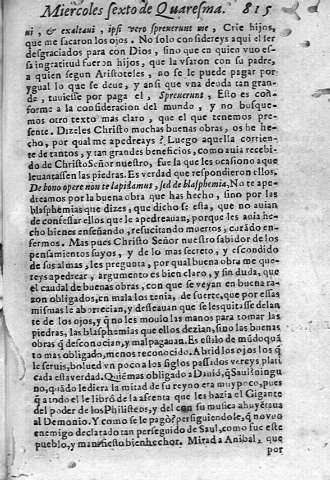 Miercoles sexto de Quaresma. 815
ui, & exaltaui, ipsi vero spreuerunt me, Crie hijos,
que me sacaron los ojos. No solo considereys aqui el ser
desgraciados para con Dios, sino que en quien vuo es-
sa ingratitud fueron hijos, que la vsaron con su padre,
a quien segun Aristoteles, no se le puede pagar por
ygual lo que se deue, y ansi que vna deuda tan gran-
de, tuuiesse por paga el, Spreuerunt, Esto es con-
forme a la consideracion del mundo, y no busque-
mos otro texto mas claro, que el que tenemos pre-
sente. Dizeles Christo muchas buenas obras, os he he-
cho, por qual me apedreays? Luego aquella corrien-
te de tantos, y tan grandes beneficios, como auia recebi-
do de Christo Señor nuestro, fue la que les ocasiono a que
leuantassen las piedras. Es verdad que respondieron ellos.
De bono opere non te lapidamus, sed de blasphemia, No te ape-
dreamos por la buena obra que has hecho, sino por las
blasphemias que dizes, que dicho se esta, que no auian
de confessar ellos que le apedreauan, porque les auia he-
cho bienes enseñando, resucitando muertos, curãdo en-
fermos. Mas pues Christo Señor nuestro sabidor de los
pensamientos suyos, y de lo mas secreto, y escondido
de sus almas, les pregunta, por qual buena obra me que-
reys apedrear, argumento es bien claro, y sin duda, que
el caudal de buenas obras, con que se veyan en buena ra-
zon obligados, en mala los tenia, de suerte, que por essas
mismas le aborrecian, y desseauan que se les quitasse delan-
te de los ojos, y q̃ no les mouia las manos para tomar las
piedras, las blasphemias que ellos dezian, sino las buenas
obras q̃ desconocian, y mal pagauan. Es estilo de mũdo quã
to mas obligado, menos reconocido. Abrid los ojos los q̃
le seruis, bolued vn poco a los siglos passados vereys plati
cada esta verdad. Quiẽ mas obligado a Dauid, q̃ Saul? ningu
no, quãdo le diera la mitad de su reyno era muy poco, pues
q̃ a todo el le libró de la afrenta que les hazia el Gigante
del poder de los Philisteos, y del con su musica ahuyẽtaua
al Demonio. Y como se le pagò? persiguiendole, q̃ no vuo
enemigo declarado tan perseguido de Saul, como fue este
pueblo, y manifiesto bienhechor. Mirad a Anibal, que
por